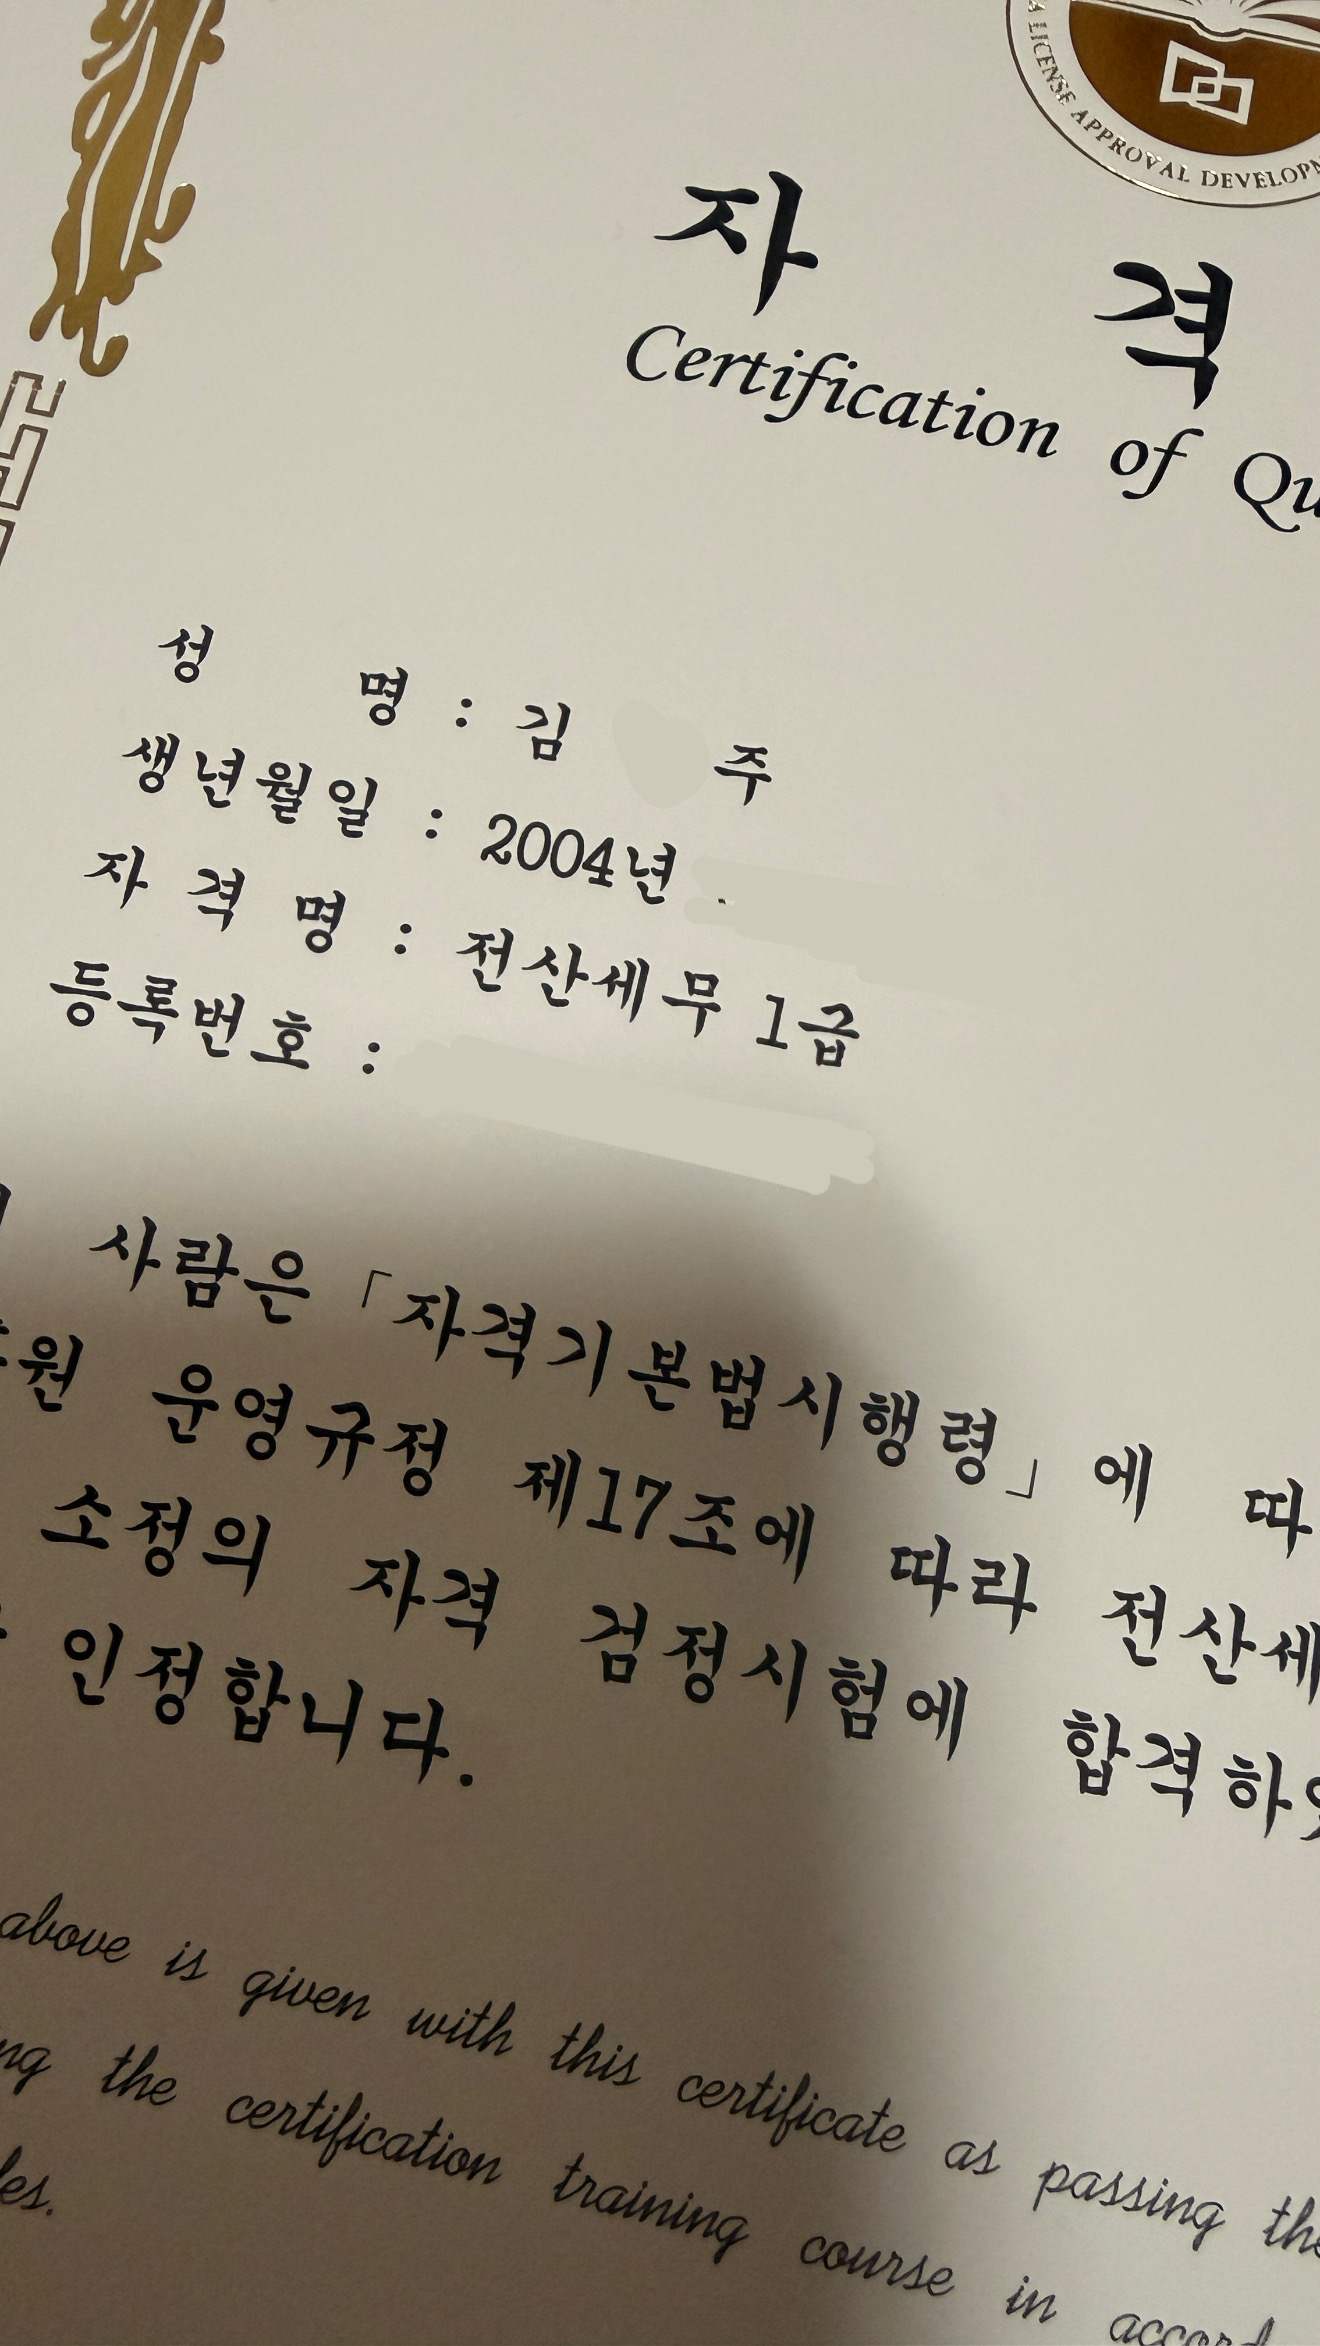 LICENSE APPROVAL
자 격
Certification of
성 명 : 김 주
생년월일 : 2004년
자 격 명 : 전산세무 1급
등록번호 :
사람은 「자격기본법시행령」에 따
원 운영규정 제17조에 따라 전산세
소정의 자격 검정시험에 합격하
인정합니다.
above is given with this certificate as passing the
the certification training course in